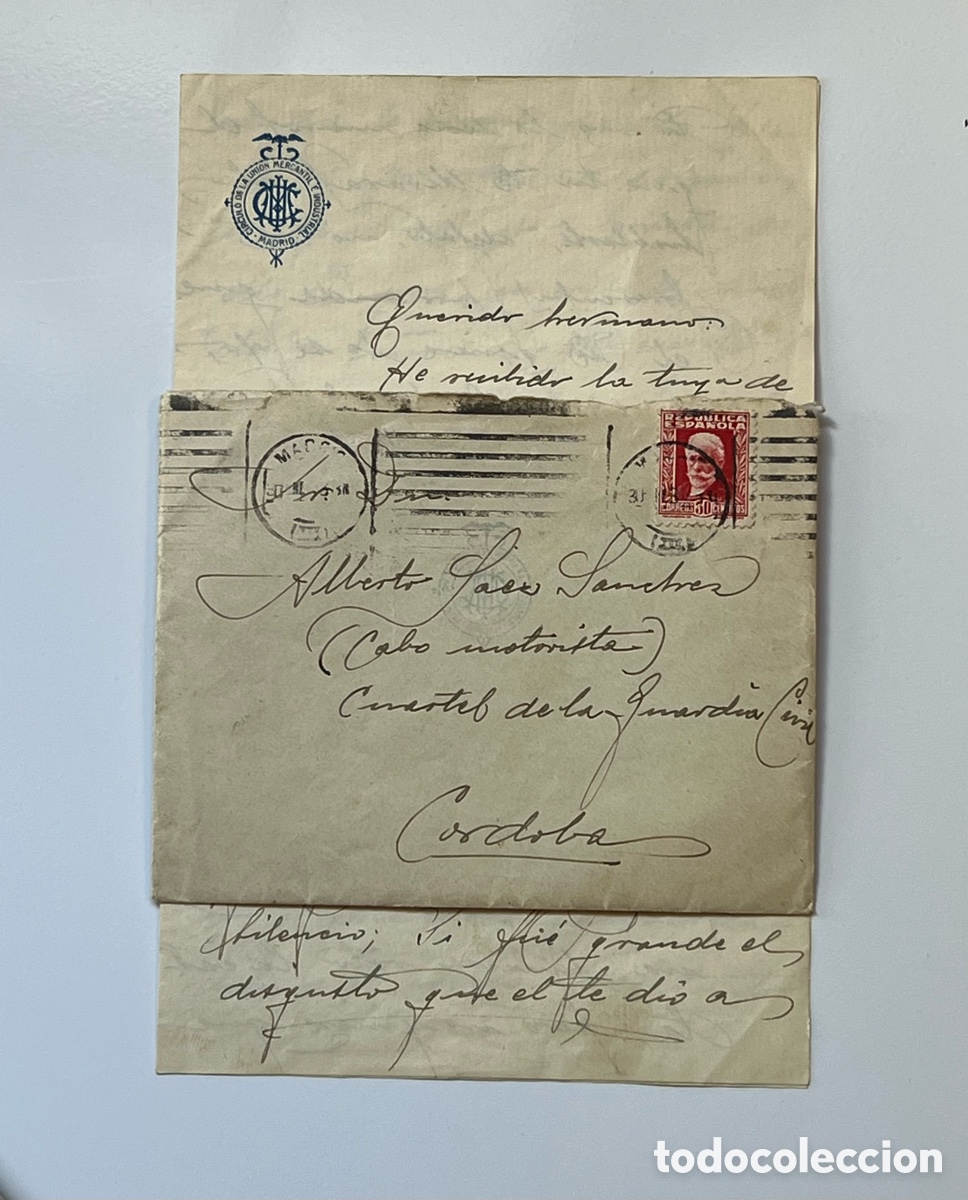 CIRCULO DE LA UNION MERCANTIL E INDUSTRIAL
MADRID
Querido hermano:
He recibido la tuya de
REPUBLICA
ESPAÑOLA
CORREOS 30 CENTIMOS
MADRID
Sr. Dn.
Alberto Saez Sanchez
(Cabo motorista)
Cuartel de la Guardia Civil
Cordoba
silencio; Si fué grande el
disgusto que el te dio a
todocoleccion